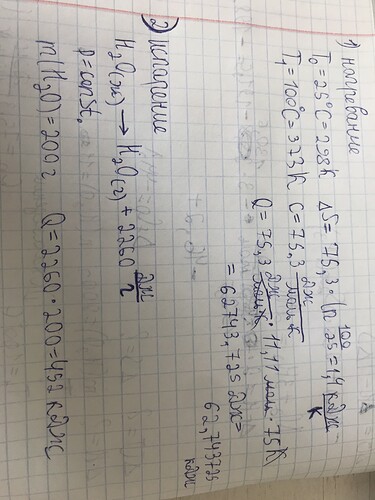 1) нагревание
T₀ = 25°C = 298 K ΔS = 75,3 · ln 100/25 = 1,4 кДж/K
T₁ = 100°C = 373 K c = 75,3 Дж/моль·K
Q = 75,3 Дж/моль·K · 11,11 моль · 75 K
= 62743,725 Дж =
62,743725 кДж
2) испарение
H₂O(ж) → H₂O(г) + 2260 Дж/г
p = const.
m(H₂O) = 200 г Q = 2260 · 200 = 452 кДж